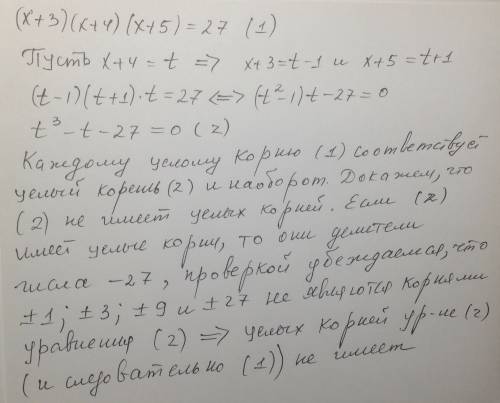 (x+3)(x+4)(x+5)=27 (1)
Пусть x+4=t => x+3=t-1 и x+5=t+1
(t-1)(t+1)·t=27 <=> (t²-1)t-27=0
t³-t-27=0 (2)
Каждому целому корню (1) соответствует
целый корень (2) и наоборот. Докажем, что
(2) не имеет целых корней. Если (2)
имеет целые корни, то они делители
числа -27, проверкой убеждаемся, что
±1; ±3; ±9 и ±27 не являются корнями
уравнения (2) => целых корней ур-ие (2)
(и следовательно (1)) не имеет